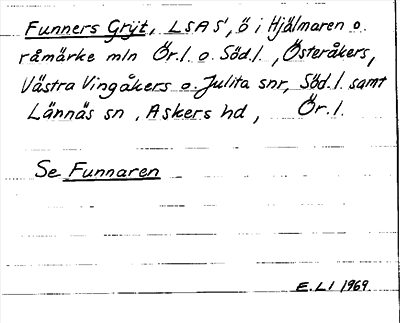 Funners Gryt, LSAS', ö i Hjälmaren o.
råmärke mln Ör.l. o. Söd.l., Österåkers,
Västra Vingåkers o. Julita snr, Söd.l. samt
Lännäs sn, Askers hd, Ör.l.
Se Funnaren
E.LI 1969